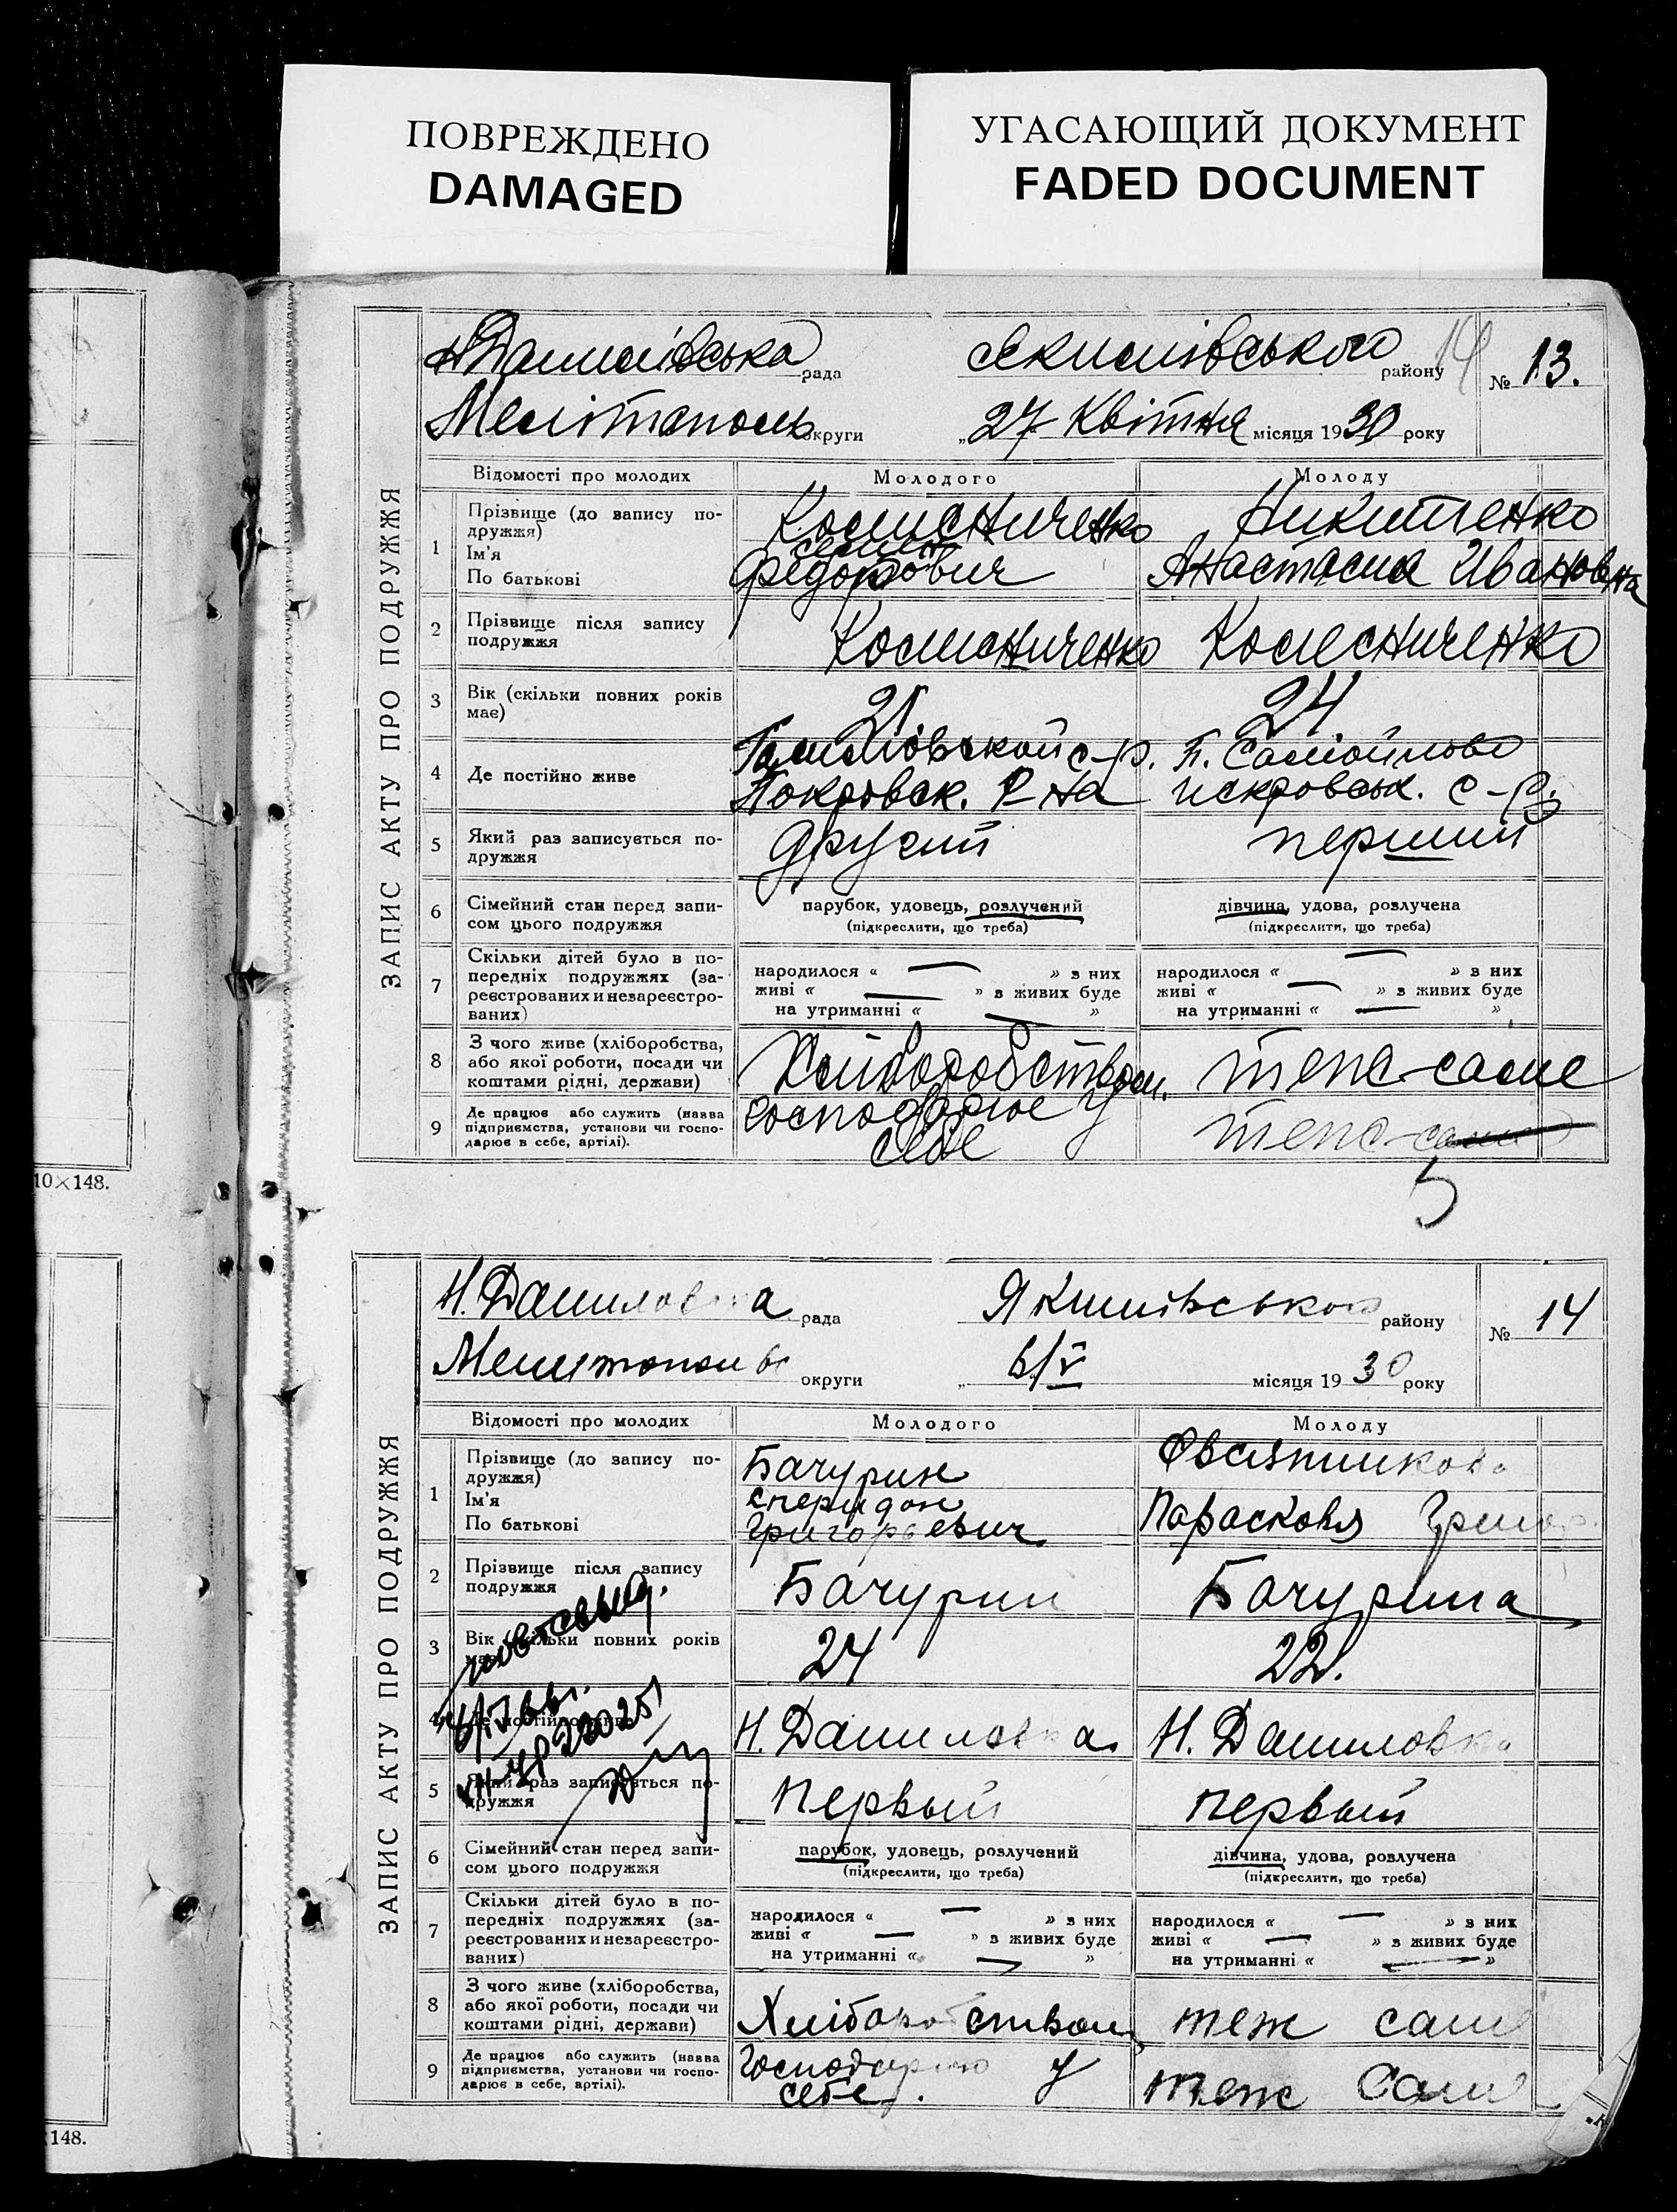 ПОВРЕЖДЕНО
DAMAGED
УГАСАЮЩИЙ ДОКУМЕНТ
FADED DOCUMENT
ЗАПИС АКТУ ПРО ПОДРУЖЖЯ
Н Данилівська рада Якимівського району 14 № 13.
Мелітополь округи „27 Квітня місяця 1930 року
Відомості про молодих Молодого Молоду
1 Прізвище (до запису по-
дружжя)
Ім'я
По батькові
Колисниченко
Федорович
Никитченко
Анастасия Ивановна
2 Прізвище після запису
подружжя
Колисниченко Колесниченко
3 Вік (скільки повних років
має)
21. 24
4 Де постійно живе
с-р.
Покровск. Р-на
П. Самойлово
с-р.
5 Який раз записується по-
дружжя
другий перший
6 Сімейний стан перед запи-
сом цього подружжя
парубок, удовець, розлучений
(підкреслити, що треба)
дівчина, удова, розлучена
(підкреслити, що треба)
7 Скільки дітей було в по-
передніх подружжях (за-
реєстрованих и незареєстро-
ваних)
народилося « — » з них
живі « — » з живих буде
на утриманні « — »
народилося « — » з них
живі « — » з живих буде
на утриманні « — »
8 З чого живе (хліборобства,
або якої роботи, посади чи
коштами рідні, держави)
Хліборобством. теж-саме
9 Де працює або служить (назва
підприємства, установи чи госпо-
дарює в себе, артілі).
господарює у
себе
теж-саме
10×148.
ЗАПИС АКТУ ПРО ПОДРУЖЖЯ
Н. Даниловка рада Якимівського району № 14
Мелитополь округи „ 6/V місяця 1930 року
Відомості про молодих Молодого Молоду
1 Прізвище (до запису по-
дружжя)
Ім'я
По батькові
Бачурин
Сперидон
Григорьевич
Овсянникова
Парасковя Григор.
2 Прізвище після запису
подружжя
Бачурин Бачурина
3 Вік (скільки повних років
має)
24 22.
повт. выд.
4 Де постійно живе
Н. Даниловка Н. Даниловка
5 Який раз записується по-
дружжя
первый первый
6 Сімейний стан перед запи-
сом цього подружжя
парубок, удовець, розлучений
(підкреслити, що треба)
дівчина, удова, розлучена
(підкреслити, що треба)
7 Скільки дітей було в по-
передніх подружжях (за-
реєстрованих и незареєстро-
ваних)
народилося « — » з них
живі « — » з живих буде
на утриманні « — »
народилося « — » з них
живі « — » з живих буде
на утриманні « — »
8 З чого живе (хліборобства,
або якої роботи, посади чи
коштами рідні, держави)
Хліборобством теж саме
9 Де працює або служить (назва
підприємства, установи чи госпо-
дарює в себе, артілі).
Господарює у
себе.
теж саме
148.